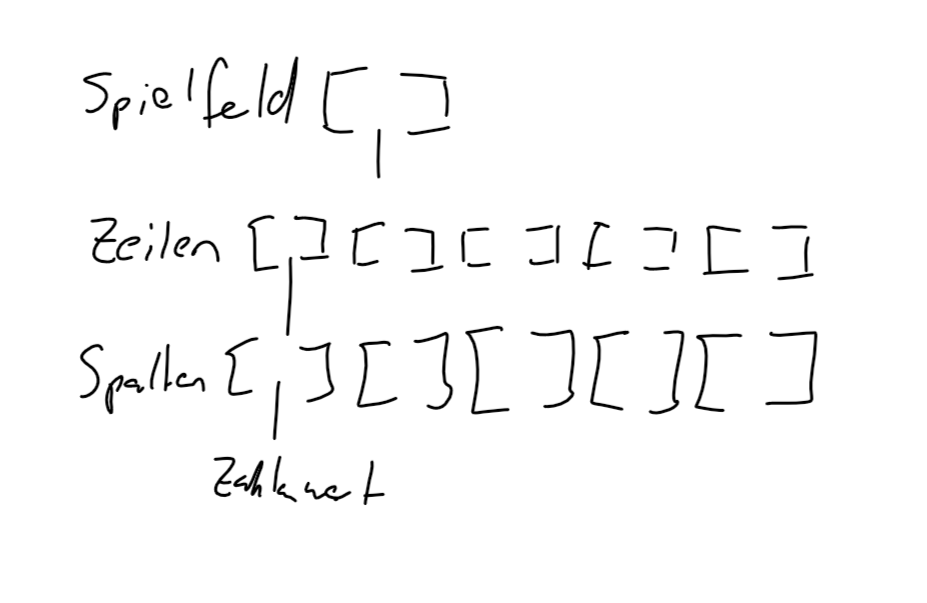 Spielfeld [ ]
Zeilen [ ] [ ] [ ] [ ] [ ]
Spalten [ ] [ ] [ ] [ ] [ ]
Zahlenwert